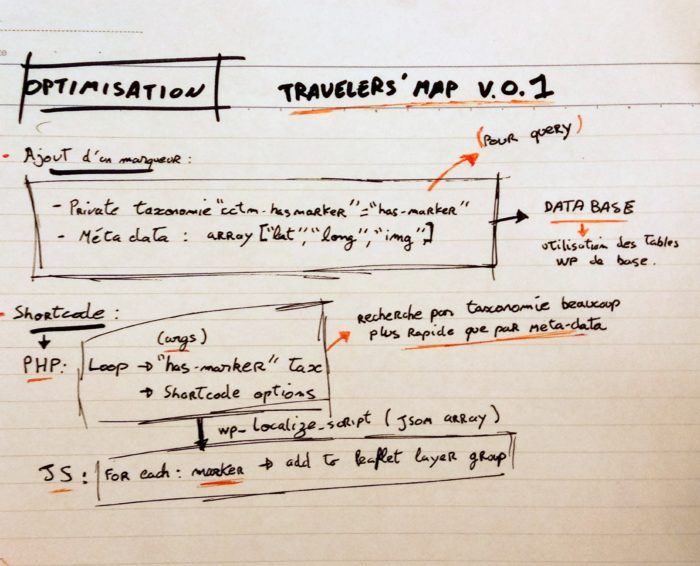 OPTIMISATION
TRAVELERS' MAP V.0.1
(POUR QUERY)
Ajout d'un marqueur :
- Private taxonomie "cctm-hasmarker"="has-marker"
- Méta data : array ["lat","long","img",]
DATA BASE
utilisation des tables
WP de base.
Shortcode :
Recherche par taxonomie beaucoup
plus rapide que par meta-data
(args)
PHP: Loop → "has-marker" tax
→ Shortcode options
wp_localize_script (Json array)
JS : For each : marker → add to leaflet layer group